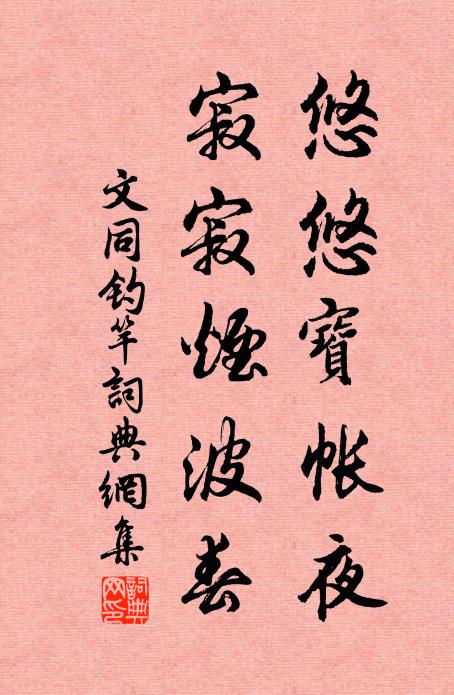 悠悠寶帳夜
寂寂煙波春
文同釣竿詞典網集
詞典網印